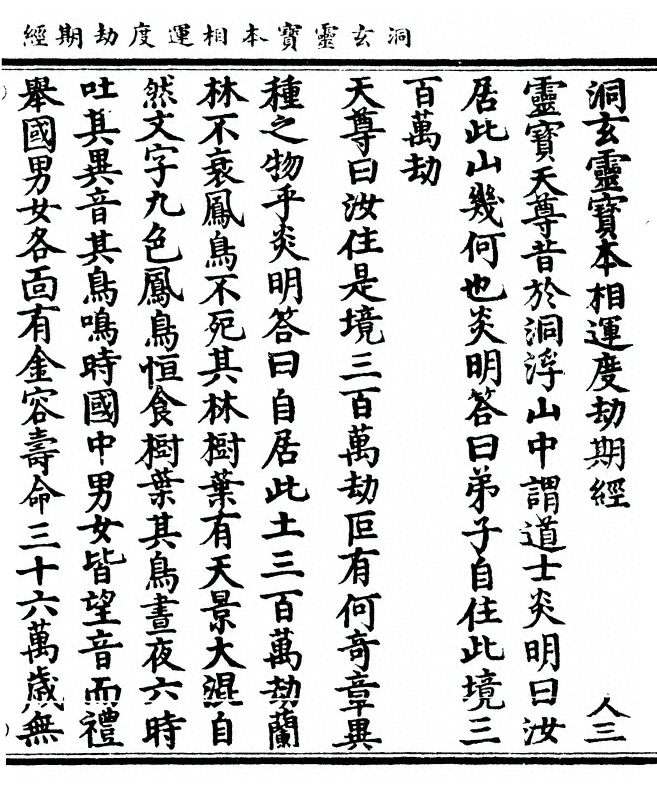 洞玄靈寶本相運度劫期經
洞玄靈寶本相運度劫期經 人三
靈寶天尊昔於洞浮山中謂道士炎明曰汝
居此山幾何也炎明答曰弟子自住此境三
百萬劫
天尊曰汝住是境三百萬劫叵有何奇章異
種之物乎炎明答曰自居此土三百萬劫蘭
林不衰鳳鳥不死其林樹葉有天景大混自
然文字九色鳳鳥恒食樹葉其鳥晝夜六時
吐其異音其鳥鳴時國中男女皆望音而禮
舉國男女各面有金容壽命三十六萬歲無